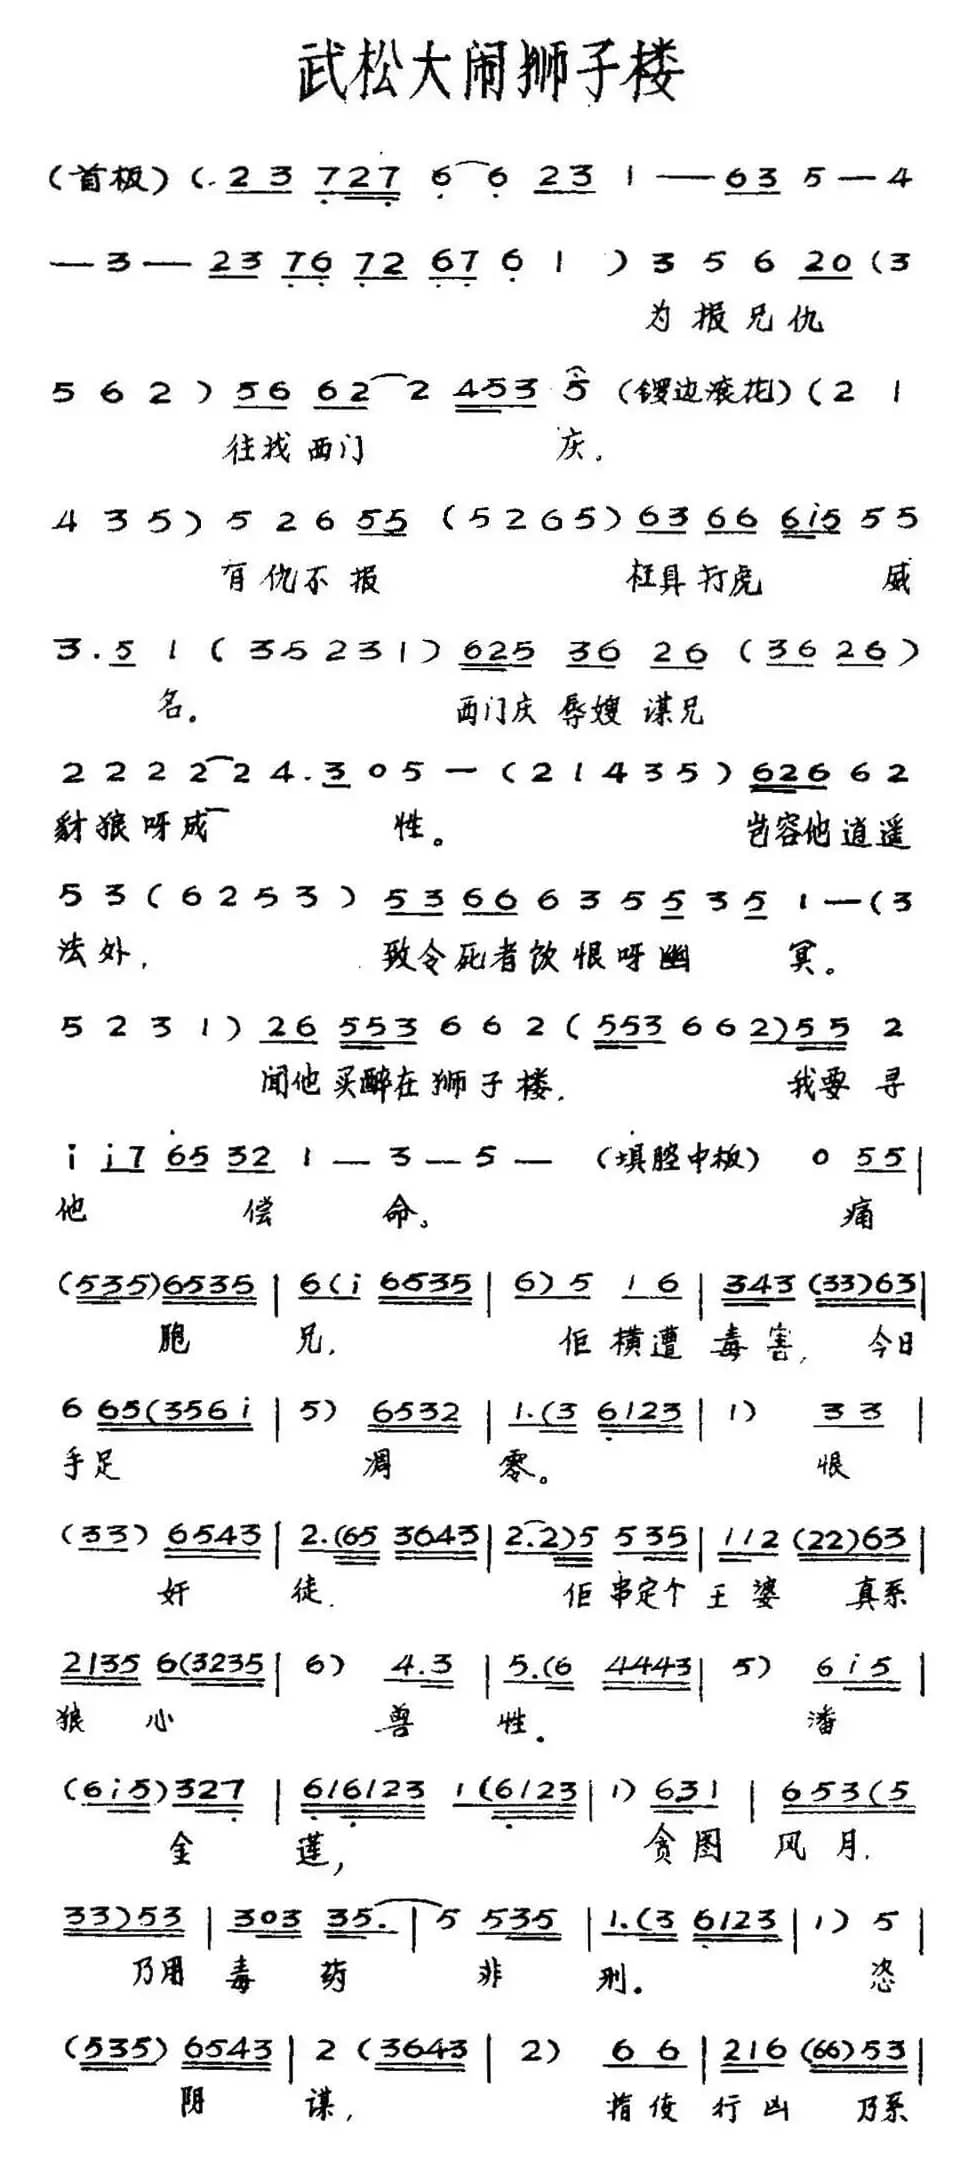 武松大闹狮子楼
(首板)(. 2 3 7 2 7 6 6 2 3 1 — 6 3 5 — 4
— 3 — 2 3 7 6 7 2 6 7 6 1 ) 3 5 6 2 0 (3
为报兄仇
5 6 2 ) 5 6 6 2 2 4 5 3 5 (锣边滚花) (2 1
往找西门 庆.
4 3 5 ) 5 2 6 5 5 (5 2 6 5) 6 3 6 6 6 i 5 5 5
有仇不报 枉具打虎 威
3 . 5 1 ( 3 5 2 3 1 ) 6 2 5 3 6 2 6 ( 3 6 2 6 )
名。 西门庆 辱嫂 谋兄
2 2 2 2 2 4 . 3 0 5 — ( 2 1 4 3 5 ) 6 2 6 6 2
豺狼呀成 性。 岂容他逍遥
5 3 ( 6 2 5 3 ) 5 3 6 6 6 3 5 5 3 5 1 — (3
法外, 致令死者饮恨呀幽 冥。
5 2 3 1 ) 2 6 5 5 3 6 6 2 ( 5 5 3 6 6 2 ) 5 5 2
闻他买醉在狮子楼. 我要寻
i i 7 6 5 3 2 1 — 3 — 5 — (填腔中板) 0 5 5 |
他 偿 命。 痛
(5 3 5) 6 5 3 5 | 6 (i 6 5 3 5 | 6) 5 1 6 | 3 4 3 (3 3) 6 3 |
胞 兄, 佢横遭毒害, 今日
6 6 5 (3 5 6 i | 5) 6 5 3 2 | 1. (3 6 1 2 3 | 1) 3 3 |
手足 凋 零。 恨
(3 3) 6 5 4 3 | 2. (6 5 3 6 4 3 | 2. 2) 5 5 3 5 | 1 1 2 (2 2) 6 3 |
奸 徒. 佢串定个王婆 真系
2 1 3 5 6 (3 2 3 5 | 6) 4. 3 | 5. (6 4 4 4 3 | 5) 6 i 5 |
狼心 兽 性. 潘
(6 i 5) 3 2 7 | 6 1 6 1 2 3 1 (6 1 2 3 | 1) 6 3 1 | 6 5 3 (5
金 莲, 贪图 风月.
3 3) 5 3 | 3 0 3 3 5. | 5 5 3 5 | 1. (3 6 1 2 3 | 1) 5 |
乃用毒 药 非 刑. 恣
(5 3 5) 6 5 4 3 | 2 (3 6 4 3 | 2) 6 6 | 2 1 6 (6 6) 5 3
阴 谋, 指使行凶 乃系